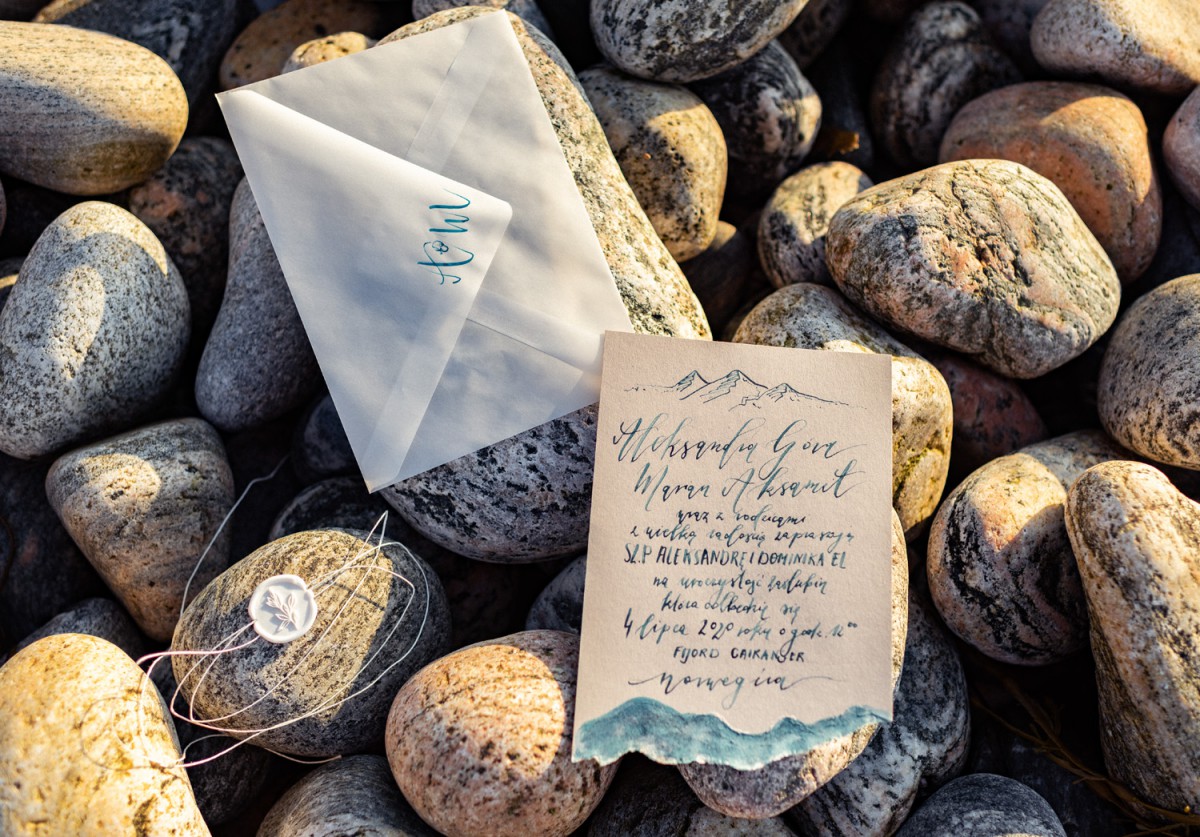 A&M
Aleksandra Gora
Maran Aksamit
wraz z rodzicami
z wielką radością zapraszają
SZ.P ALEKSANDRĘ I DOMINIKA EL
na uroczystość zaślubin
która odbędzie się
4 lipca 2020 roku o godz. 12⁰⁰
FIJORD GAIRANGER
norwegia